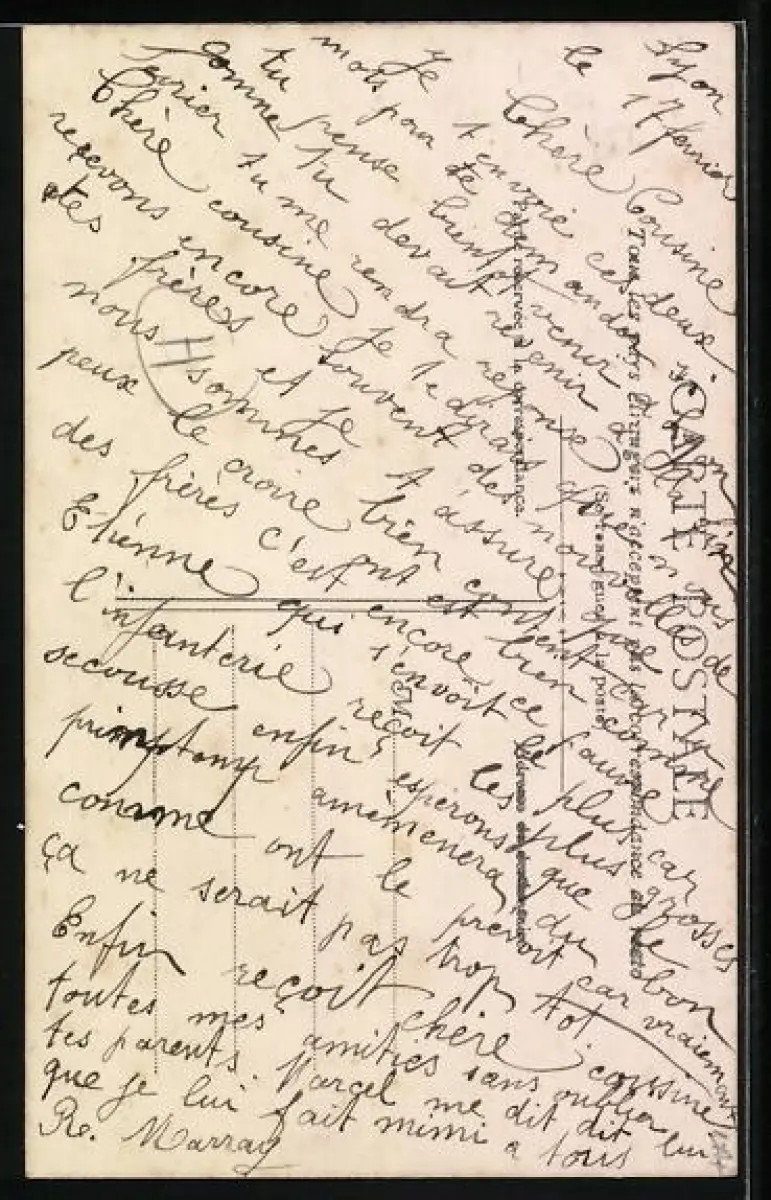 Lyon
le 17 fevrier
Chère Cousine
Je t'envoie ces deux
mots pour te demander si
tu pense bientôt venir à Lyon
comme tu devait revenir
février tu me rendra réponse
Chère cousine Je te dirais que nous
recevons encore souvent des nouvelle de
tes frères et Je t'assure que
nous sommes bien content car tu
peux le croire
des frères c'est encore ce
Etienne qui s'envoit le plus car
l'infanterie reçoit les plus grosses
secousse enfin espérons que le
primptemp amènenera du bon
comme ont le prevoit car vraiement
ça ne serait pas trop tot.
Enfin reçoit chère cousine
toutes mes amities sans oublier
tes parents. Marcel me dit dit lui
que je lui fait mimi a tous
Re. Marray
H
CARTE POSTALE
Tous les pays étrangers n'acceptent pas la correspondance au recto
(Se renseigner à la poste)
Partie réservée à la correspondance.
Adresse du destinataire